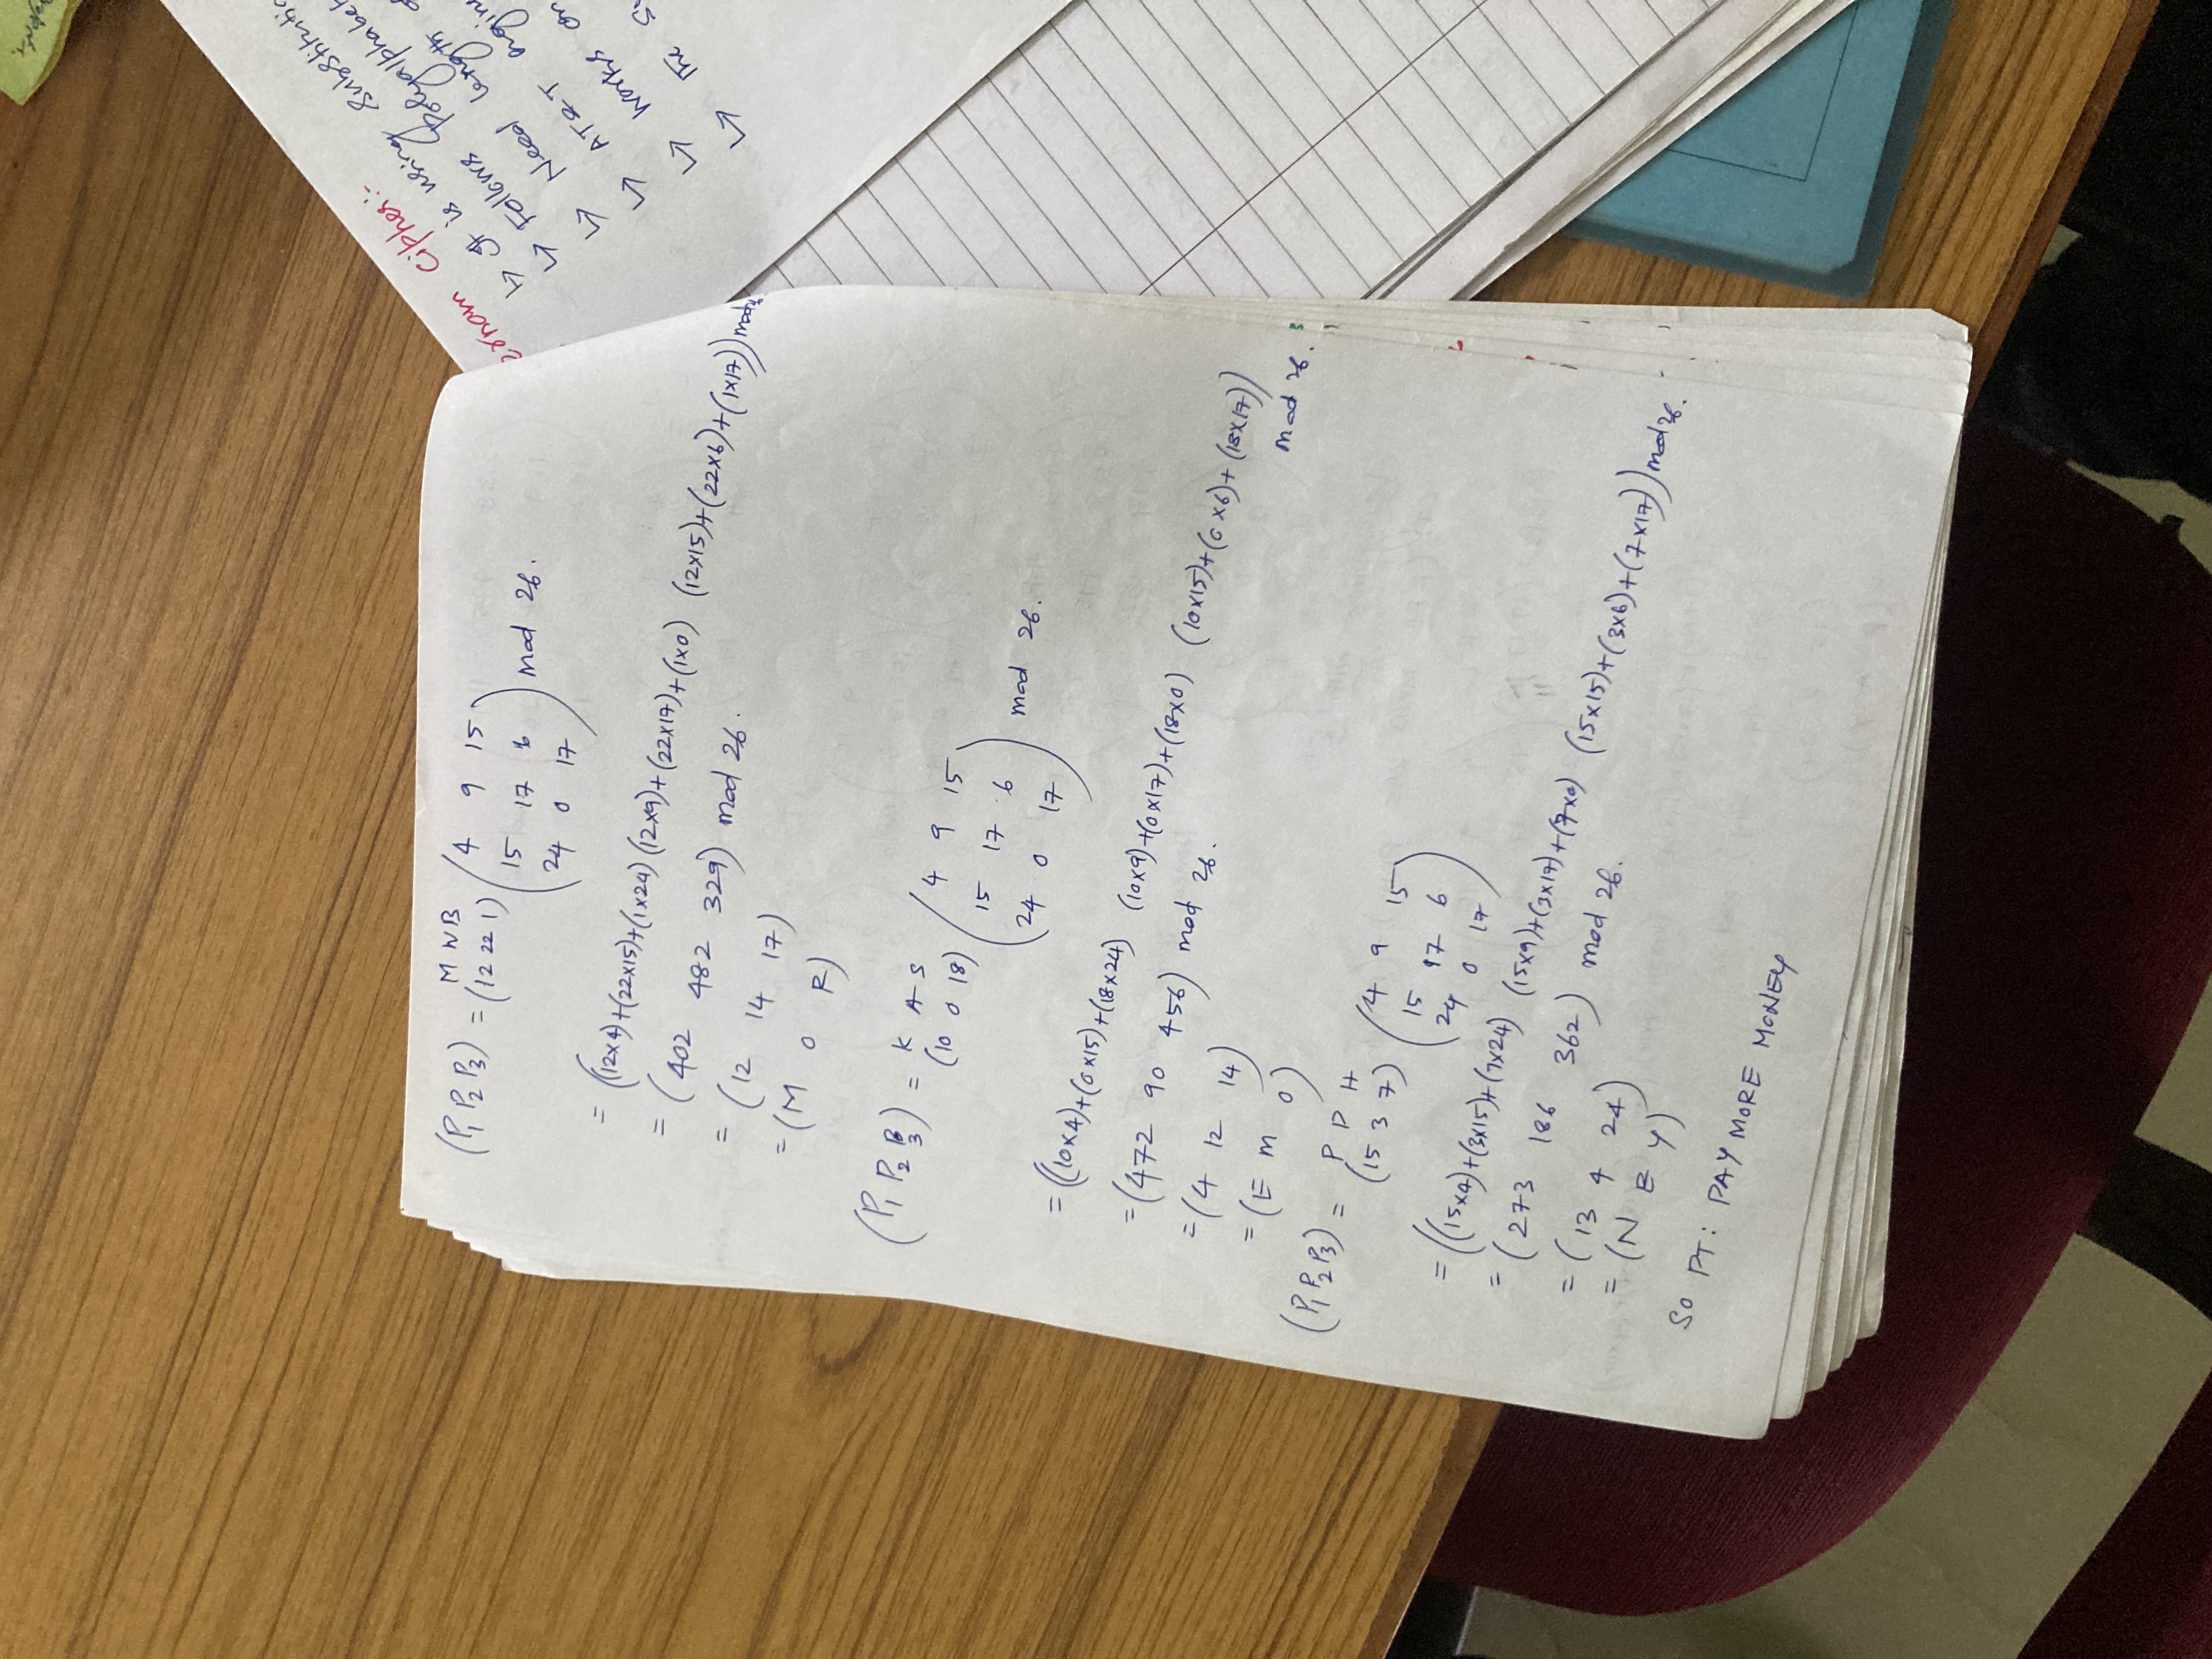 M W B
(P1 P2 P3) = (12 22 1) (4 9 15
15 17 6
24 0 17) mod 26.
= ((12x4)+(22x15)+(1x24) (12x9)+(22x17)+(1x0) (12x15)+(22x6)+(1x17)) mod 26
= (402 482 329) mod 26.
= (12 14 17)
= (M O R)
K A S
(P1 P2 P3) = (10 0 18) (4 9 15
15 17 6
24 0 17) mod 26.
= ((10x4)+(0x15)+(18x24) (10x9)+(0x17)+(18x0) (10x15)+(0x6)+(18x17))
mod 26.
= (472 90 456) mod 26.
= (4 12 14)
= (E M O)
P D H
(P1 P2 P3) = (15 3 7) (4 9 15
15 17 6
24 0 17)
= ((15x4)+(3x15)+(7x24) (15x9)+(3x17)+(7x0) (15x15)+(3x6)+(7x17)) mod 26.
= (273 186 362) mod 26.
= (13 4 24)
= (N E Y)
SO PT: PAY MORE MONEY
ernam Cipher:-
↳ It is using Substitutio
↳ Follows Polyalphabet
↳ Need length of
↳ AT&T
↳ Works on
↳ The